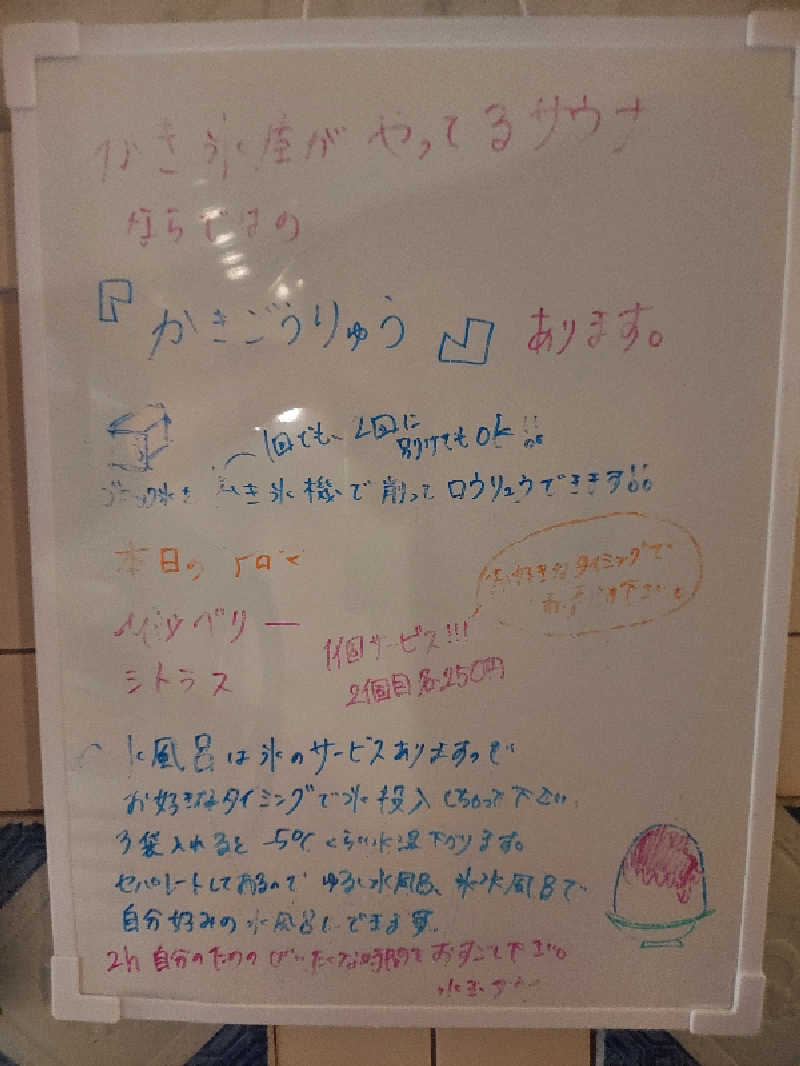 かき氷屋がやってるサウナ
ならではの
『かきごうりゅう』あります。
1回でも、2回に
別けてもOK!!
氷をかき氷機で削ってロウリュウできます!!
本日のアロマ
ベリー
シトラス
お好きなタイミングで
下さい。
1個サービス!!!
2個目各250円
水風呂は氷のサービスありますので
お好きなタイミングで氷投入しちゃって下さい。
3袋入れると-5℃くらい水温下がります。
セパレートしてあるのでゆるい水風呂、氷水風呂で
自分好みの水風呂にできます。
2h 自分のためのぜいたくな時間をおすごし下さい。